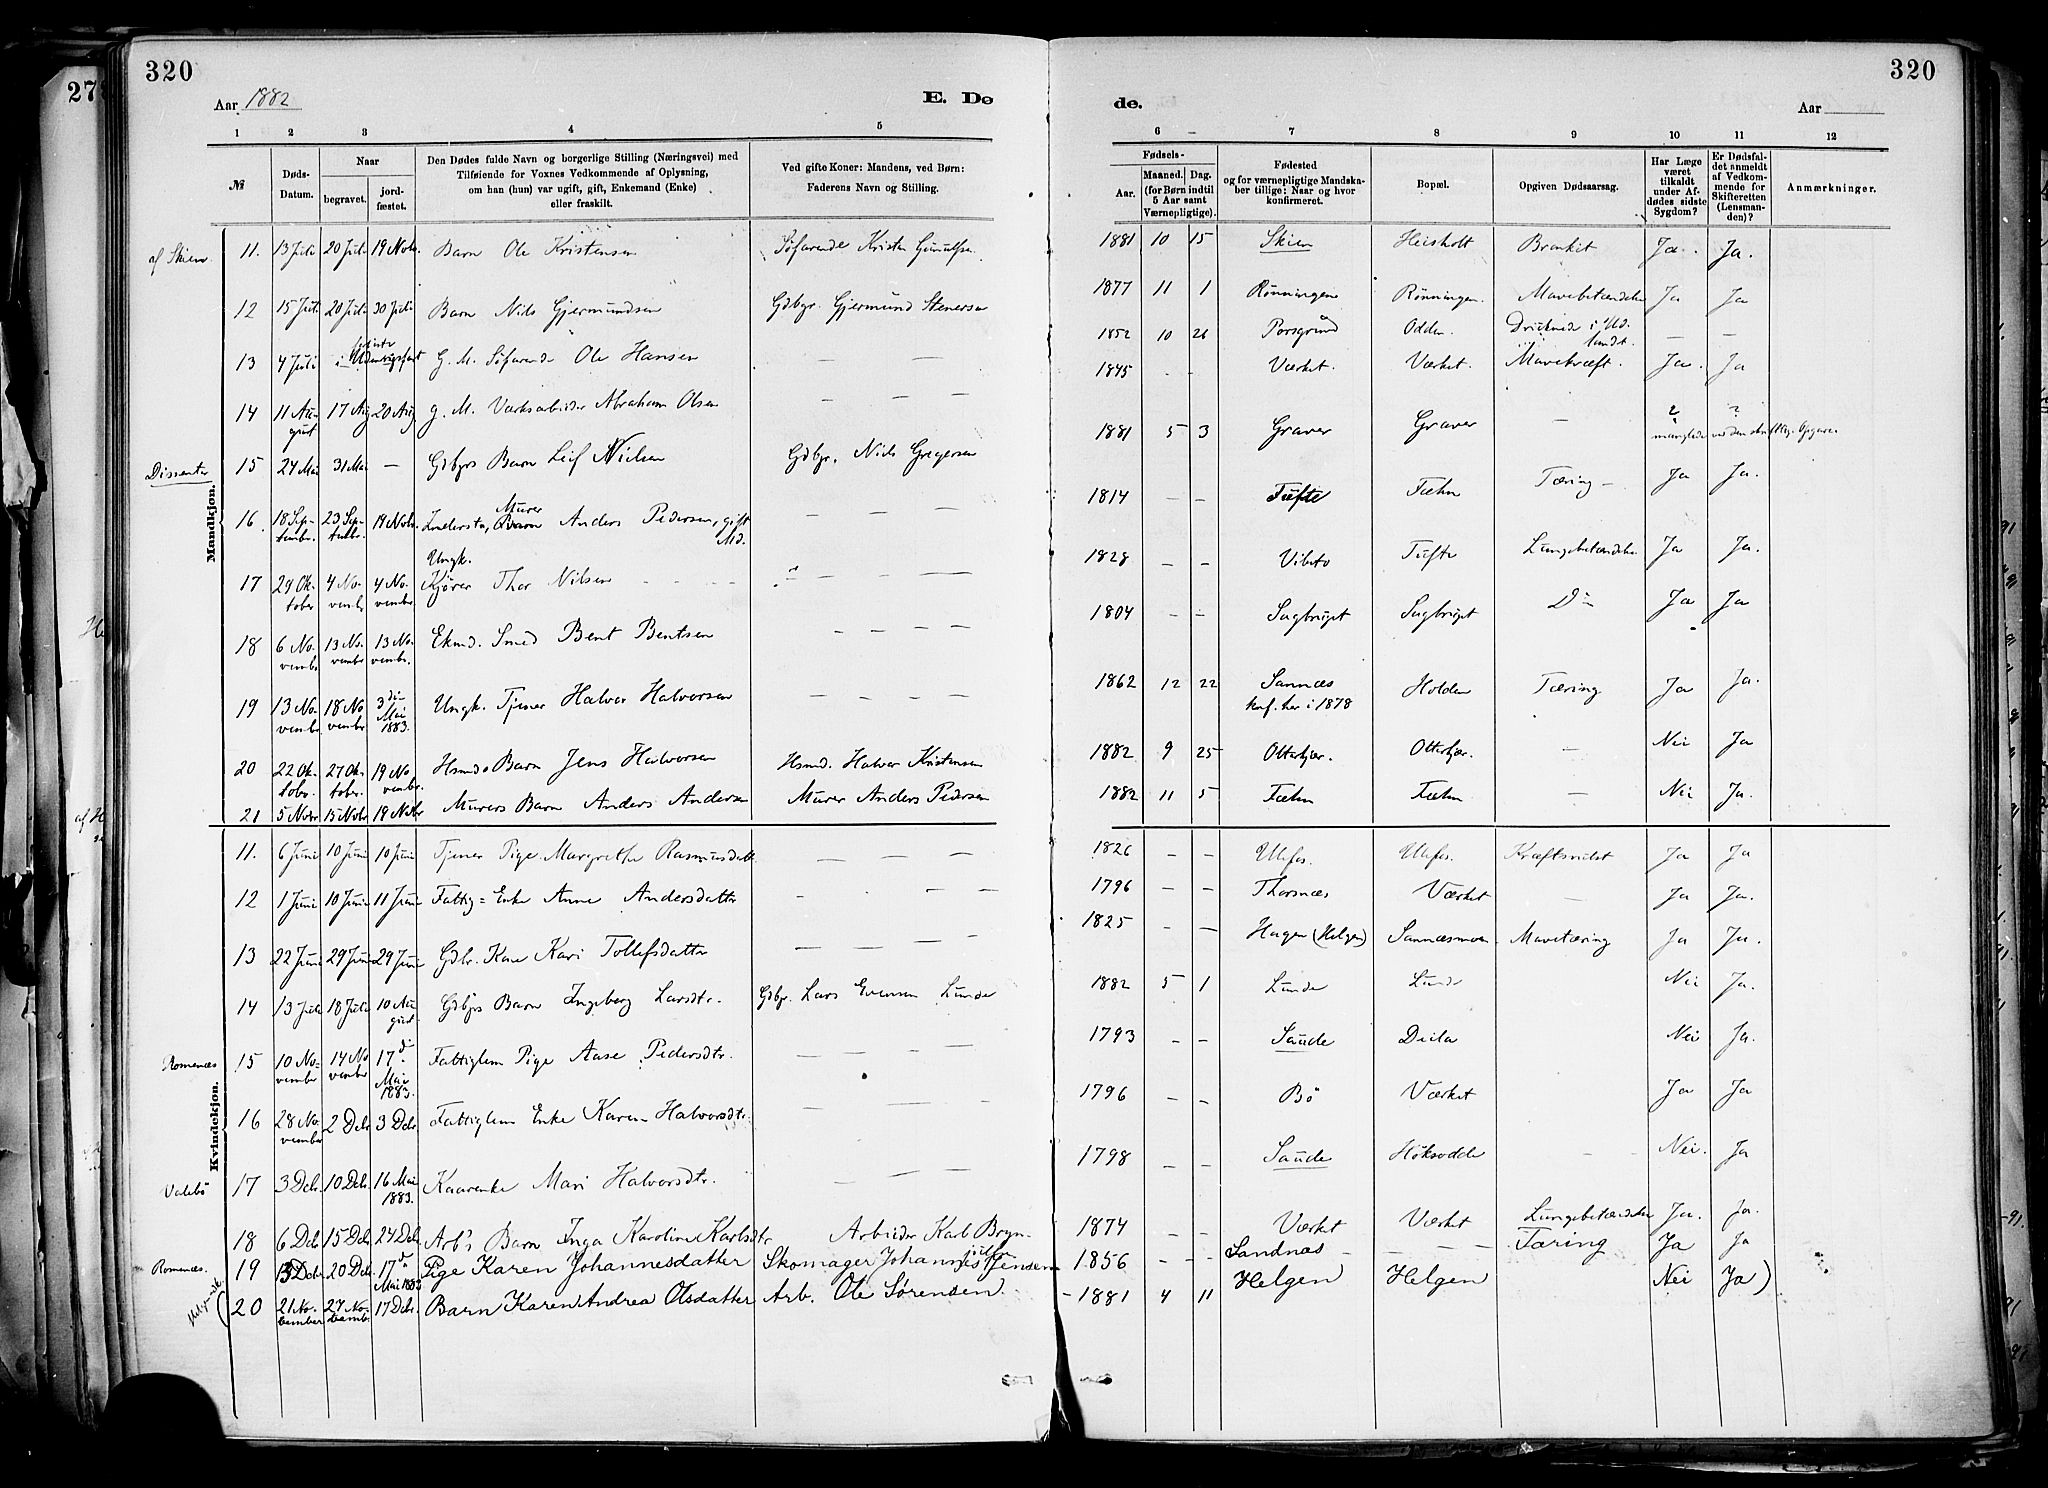 320
320
Aar 1882
E. Dø
de.
Aar
1 2 3 4 5 6 7 8 9 10 11 12
№
Døds-Datum.
Naar
begravet.
jord-fæstet.
Den Dødes fulde Navn og borgerlige Stilling (Næringsvei) med
Tilføiende for Voxnes Vedkommende af Oplysning,
om han (hun) var ugift, gift, Enkemand (Enke)
eller fraskilt.
Ved gifte Koner: Mandens, ved Børn:
Faderens Navn og Stilling.
Fødsels-
Aar.
Maaned. Dag.
(for Børn indtil
5 Aar samt
Værnepligtige).
Fødested
og for værnepligtige Mandska-
ber tillige: Naar og hvor
konfirmeret.
Bopæl.
Opgiven Dødsaarsag.
Har Læge
været
tilkaldt
under Af-
dødes sidste
Sygdom?
Er Dødsfal-
det anmeldt
af Vedkom-
mende for
Skifteretten
(Lensman-
den)?
Anmærkninger.
Mandkjøn.
af Skien 11. 13 Juli 20 Juli 19 Novb. Barn Ole Kristensen Søfarende Kristen 1881 10 15 Skien Heisholt Ja. Ja.
12 15 Juli 20 Juli 30 Juli Barn Nils Gjermundsen Gdbgr. Gjermund Stenersen 1877 11 1 Rønningene Rønningen. Mavebetændelse Ja Ja
13 4 Juli G. M. Søfarende Ole Hansen — — — 1852 10 26 Porsgrund Odden. Druknede i Ud-landt. — —
14 11 August 17 Aug 20 Aug. g. M. Værksarbeider Abraham Olsen — — — 1845 - - Værket. Værket. Mavekræft. Ja. Ja
Dissenter 15 24 Mai 31 Mai — Gdbgrs Barn Leif Nielsen Gdbgr. Niels Gregersen 1881 5 3 Graver Graver — ? ? manglede
16. 18 September. 23 Septbr. 19 Novb. Inderst, Murer Anders Pedersen, gift Md. — — — — 1814 — — Tufte Fæhn Tæring — Ja Ja.
17 29 Oktober 4 November 4 November. Ungk. Kjører Thor Nilsen — — — — 1828 - - Vibeto Tufte Lungebetændelse Ja Ja.
18 6 November 13 November 13 November. Ekmd. Smed Bent Bentsen — — — — 1804 - - Sagbruget Sagbruget Do Ja Ja
19 13 November 18 November 3die Mai 1883. Ungk. Tjener Halvor Halvorsen — — — — 1862 12 22 Sannæs konf. her i 1878 Holden Tæring Ja Ja.
20 22 Oktobr. 27 Oktober. 19 November. Hsmds Barn Jens Halvorsen Hsmd. Halvor Kristensen 1882 9 25 Otterkjær. Otterkjær. — Nei Ja
21 5 Novbr 15 Novbr 19 Novbr Murers Barn Anders Andersen Murer Anders Pedersen 1882 11 5 Fæhn Fæhn — Nei Ja.
Kvindekjøn.
11. 6 Juni 10 Juni 10 Juni Tjener Pige Margrethe Rasmusdatt. — — — 1826 - - Ulefos. Ulefos. Kræftsvulst Ja Ja
12 1 Juni 10 Juni 11 Juni Fattig= Enke Anne Andersdatter - — — 1796 - - Thorsnæs Værket — Ja Ja.
13 22 Juni 29 Juni 29 Juni Gdbr. Kone Kari Tollefsdatter — — — — 1825 - - Hagen (Helgen) Sannæsmoen Mavetæring Ja Ja.
14 13 Juli 18 Juli 10 August Gdbgrs Barn Ingeborg Larsdtr. Gdbgr. Lars Evensen Lunde 1882 5 1 Lunde Lunde Nei Ja.
Romenæs 15 10 November 14 November 17de Mai 1883. Fattiglem Pige Aase Pedersdtr. — — — — 1793 - - Saude Nei Ja.
16 28 November 2 Decbr 3 Decbr Fattiglem Enke Karen Halvorsdtr. — — — — 1796 - - Bø Værket Ja Ja
Valebø 17 3 Decbr. 10 Decbr. 16 Mai 1883. Kaarenke Mari Halvorsdtr. — — — 1798 - - Saude Høksodde — - Nei. Ja
18 6 Decbr 15 Decbr 24 Decbr. Arb's Barn Inga Karoline Karlsdtr Arbeider Karl Bryn- 1874 Værket Værket Lungebetændelse Ja. Ja.
Romenæs. 19 13 Decbr 20 Decbr. 17de Mai 1883 Pige Karen Johannesdatter Skomager Johannes Jensen 1856 - - Sandnæs — — — Tæring Ja Ja
(20 21 November 27 Novemb. 17 Decbr. Barn Karen Andrea Olsdatter Arb. Ole Sørensen 1881 4 11 Helgen Helgen Nei Ja)